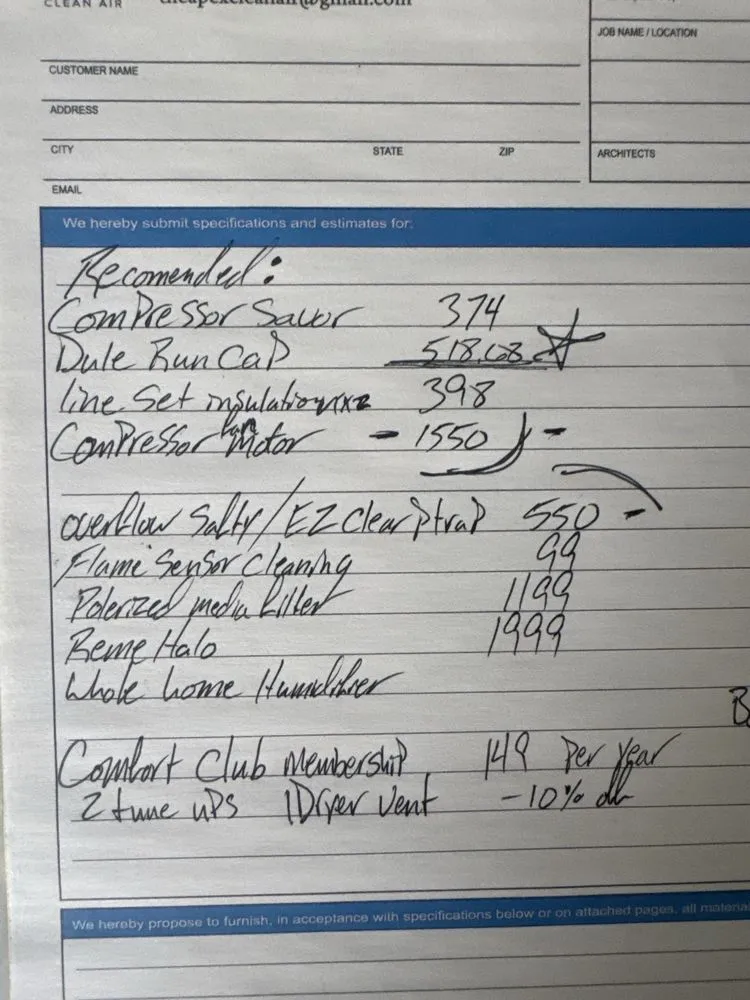 CLEAN AIR theapexcleanair@gmail.com
JOB NAME / LOCATION
CUSTOMER NAME
ADDRESS
CITY STATE ZIP ARCHITECTS
EMAIL
We hereby submit specifications and estimates for:
Recomended:
Compressor Savor 374
Dule Run Cap 518.68
line set insulation x2 398
Compressor fan Motor - 1550 -
overflow Safty / EZ Clear Ptrap 550 -
Flame Sensor Cleaning 99
Polerized media filter 1199
Reme Halo 1999
Whole home Humidifier
Comfort Club Membership 149 Per Year
2 tune ups 1 Dryer Vent -10%
We hereby propose to furnish, in acceptance with specifications below or on attached pages, all material